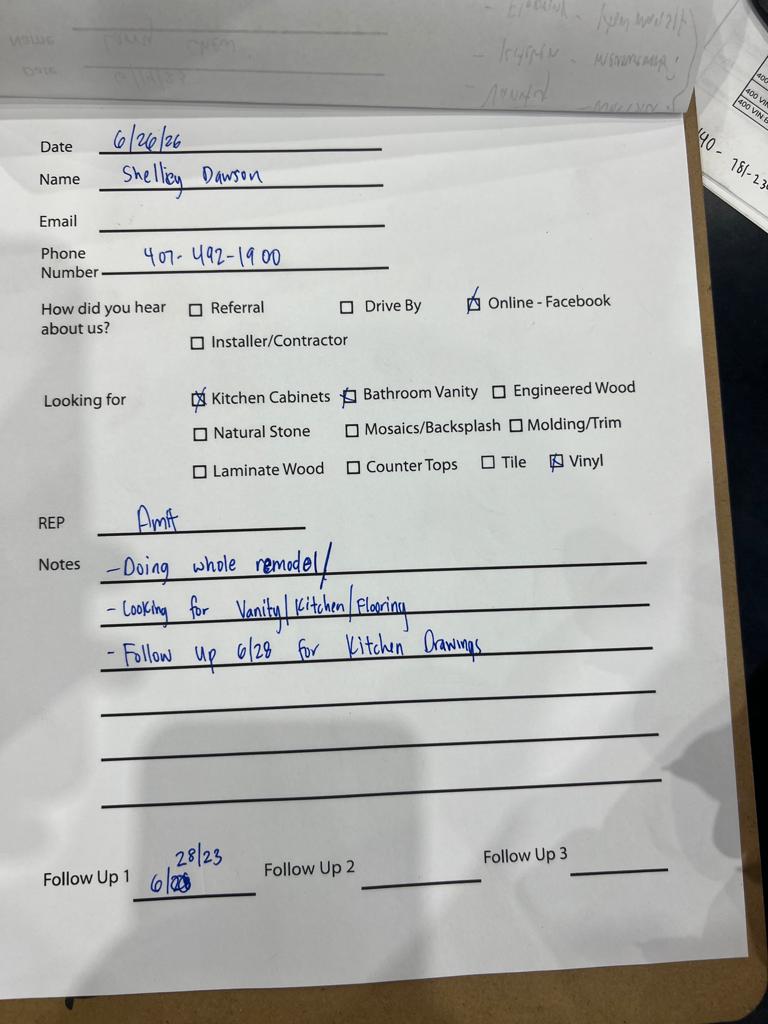 Name Larry Chew
Date
- Kitchen -
- Vanity -
400 VIN
400 VIN
Date 6/26/26
Name Shelley Dawson
Email
Phone
Number 407-492-1900
How did you hear about us? ☐ Referral ☐ Drive By ☑ Online - Facebook
☐ Installer/Contractor
Looking for ☒ Kitchen Cabinets ☒ Bathroom Vanity ☐ Engineered Wood
☐ Natural Stone ☐ Mosaics/Backsplash ☐ Molding/Trim
☐ Laminate Wood ☐ Counter Tops ☐ Tile ☒ Vinyl
REP Amit
Notes - Doing whole remodel/
- Looking for Vanity/Kitchen/Flooring
- Follow up 6/28 for Kitchen Drawings
28/23
Follow Up 1 6/ Follow Up 2 Follow Up 3